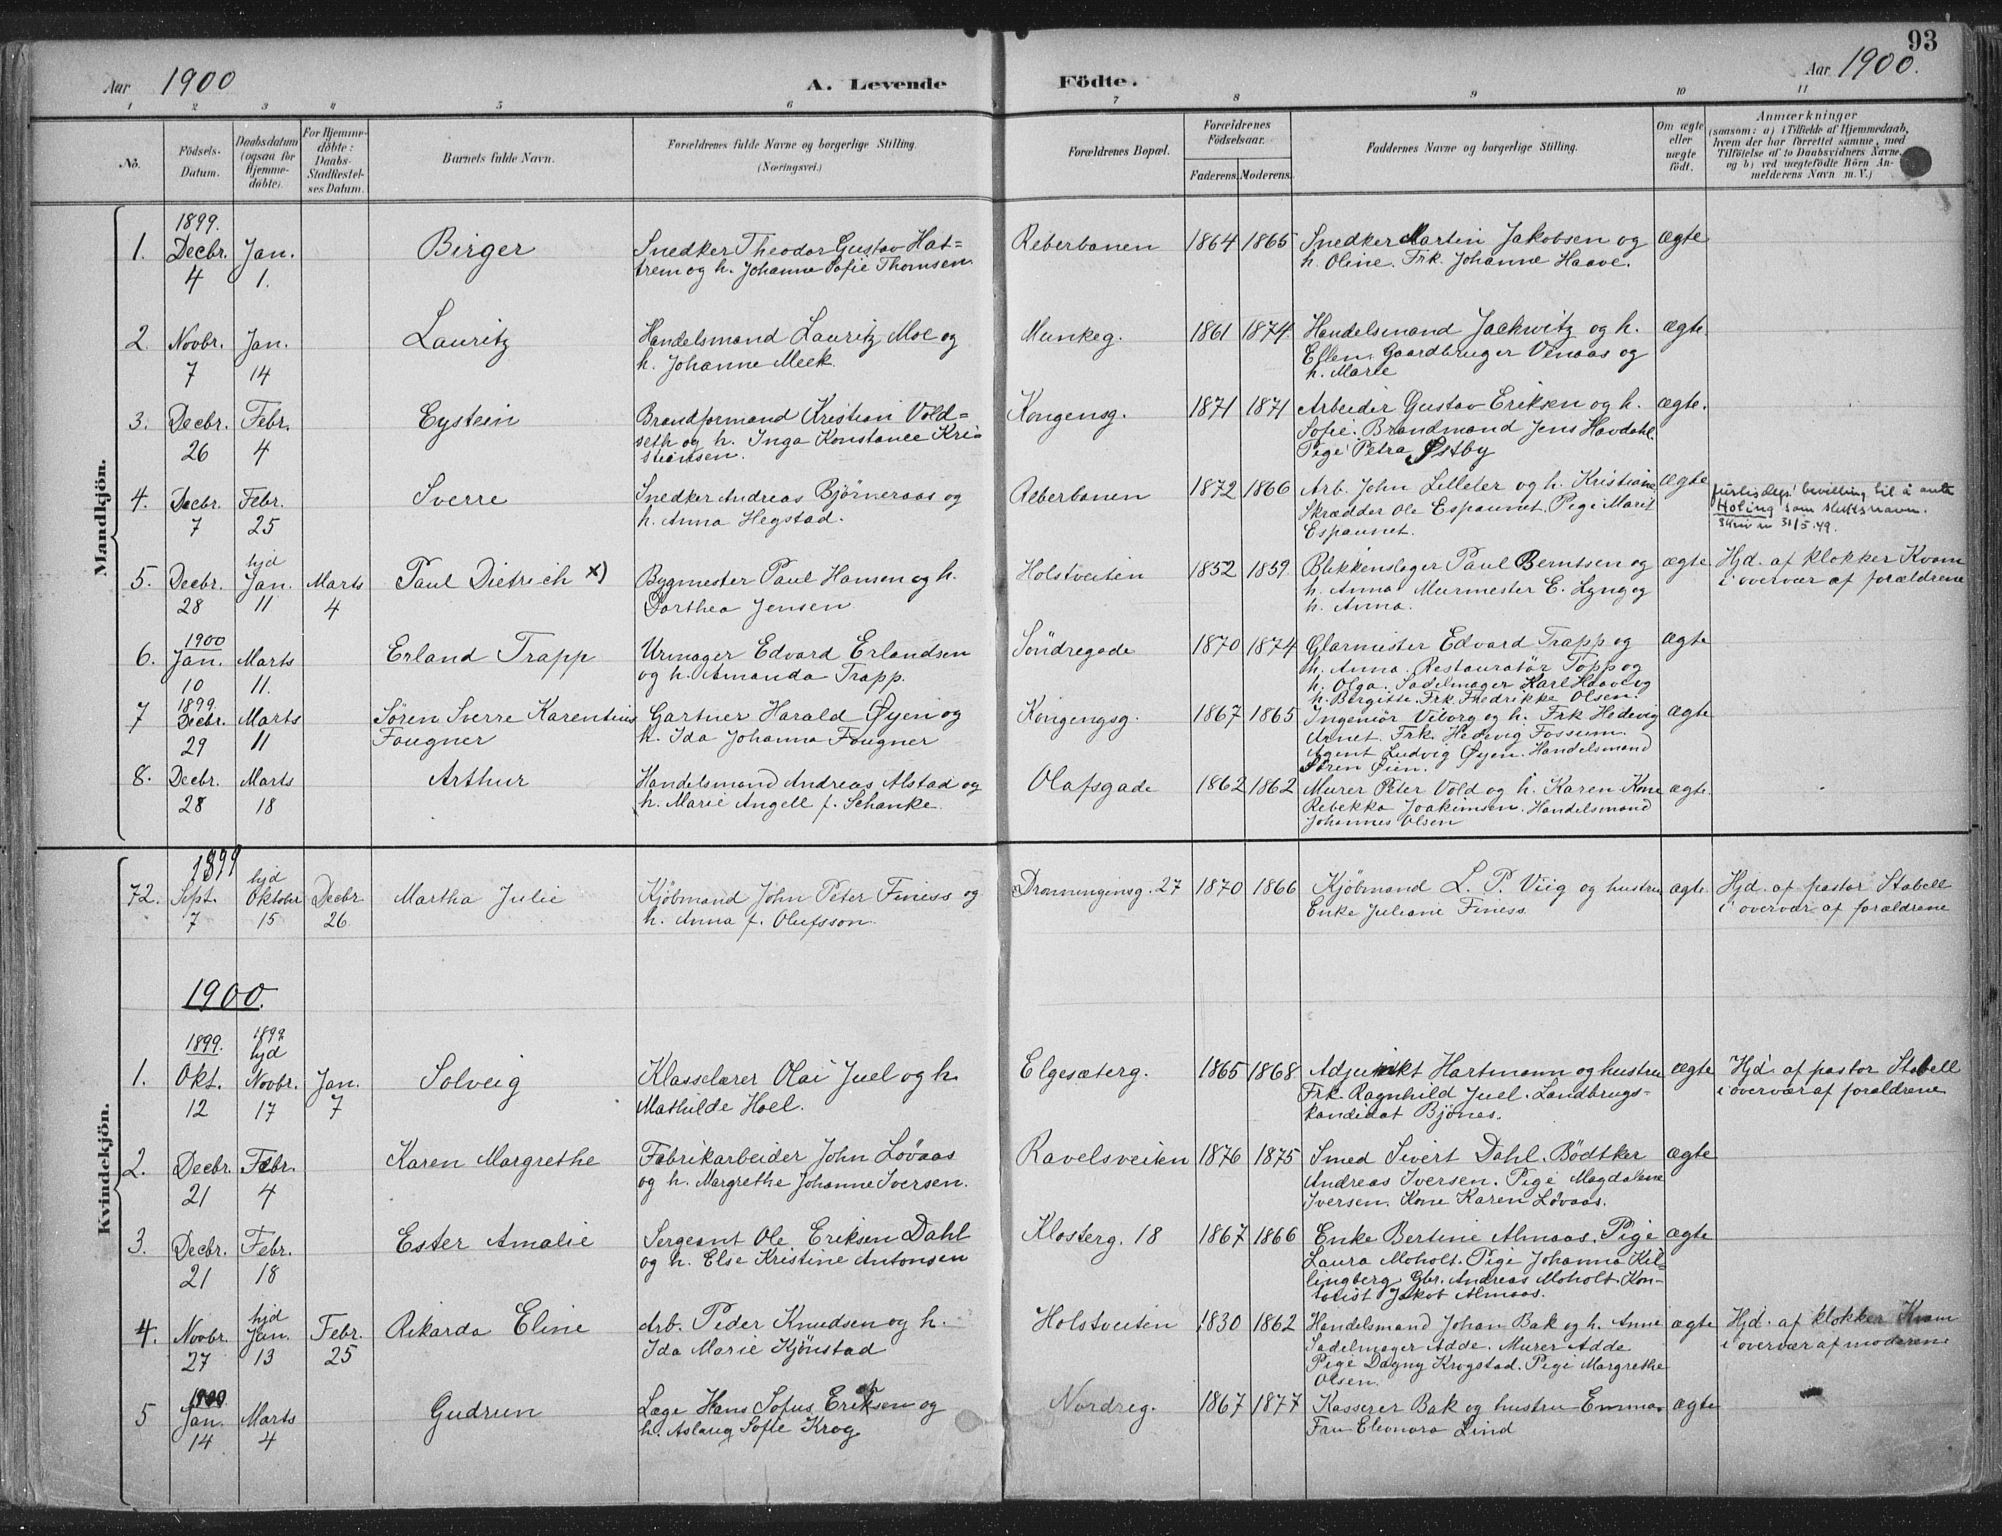 93
Aar 1900
A. Levende Födte.
Aar 1900.
1 2 3 4 5 6 7 8 9 10 11
No.
Födsels-Datum.
Daabsdatum (ogsaa for Hjemme-døbte).
For Hjemme-döbte: Daabs-Stadfæstel-ses Datum.
Barnets fulde Navn.
Forældrenes fulde Navne og borgerlige Stilling.
(Næringsvei.)
Forældrenes Bopæl.
Forældrenes Födselsaar.
Faderens. Moderens.
Faddernes Navne og borgerlige Stilling.
Om ægte eller uægte födt.
Anmærkninger
(saasom: a) i Tilfælde af Hjemmedaab,
hvem der har forrettet samme, med
Tilföielse af to Daabsvidners Navne,
og b) ved uægtefödte Börn An-
melderens Navn m.V.)
Mandkjön.
1. 1899. Decbr. 4 Jan. 1. Birger
Snedker Theodor Gustav Hat=
trem og h. Johanne Sofie Thomsen
Reberbanen 1864 1865
Snedker Martin Jakobsen og
h. Oline. Frk. Johanne Haave.
ægte
2. Novbr. 7 Jan. 14 Lauritz
Handelsmand Lauritz Moe og
h. Johanne Meek.
Munkeg. 1861 1874.
Handelsmand Jackwitz og h.
Ellen. Gaardbruger Venaas og
h. Marie
ægte.
3. Decbr. 26 Febr. 4 Eystein
Brandformand Kristian Vold=
seth og h. Inga Konstance Kri=
stiansen.
Kongensg. 1871 1871
Arbeider Gustav Eriksen og h.
Sofie. Brandmand Jens Havdahl.
Pige Petra Østby
ægte.
4. Decbr. 7 Febr. 25 Sverre
Snedker Andreas Bjørneraas og
h. Anna Hegstad.
Reberbanen 1872 1866
Arb. John Lilleler og h. Kristiane
Skrædder Ole Espaunet. Pige Marit
Espaunet.
ægte
Justisdeps' bevilling til å anta
Holing som slektsnavn.
31/5.49.
5. Decbr. 28 hjd Jan. 11 Marts 4 Paul Dietrich x)
Bygmester Paul Hansen og h.
Dorthea Jensen
Holstveiten 1852 1859
Blikkenslager Paul Berntsen og
h. Anna Murmester E. Lyng og
h. Anna.
ægte
Hjd. af klokker Kvam
i overvær af forældrene
6. 1900 Jan. 10 Marts 11. Erland Trapp
Urmager Edvard Erlandsen
og h. Amanda Trapp.
Söndregade 1870 1874
Glarmester Edvard Trapp og
h. Anna. Restauratør Topp og
h. Olga. Sadelmager Karl Haave og
h. Bergitte. Frk. Fredrikke Olsen.
ægte
7 1899. Decbr. 29 Marts 11 Søren Sverre Karentius
Fougner
Gartner Harald Øyen og
h. Ida Johanna Fougner
Kongengsg. 1867 1865
Ingeniør Viborg og h. Frk Hedevig
Arnet. Frk. Hedevig Fossum.
Agent Ludvig Øyen. Handelsmand
Søren Øien.
ægte
8. Decbr. 28 Marts 18 Arthur
Handelsmand Andreas Alstad og
h. Marie Angell f. Schanke.
Olafsgade 1862 1862
Murer Peter Vold og h. Karen Kone
Rebekka Joakimsen. Handelsmand
Johannes Olsen
ægte.
Kvindekjön.
72. 1899 Sept. 7 hjd Oktober 15 Decbr 26 Martha Julie
Kjöbmand John Peter Finess og
h. Anna f. Olufsson.
Dronningensg. 27 1870 1866
Kjøbmand L. P. Viig og hustru
Enke Juliane Finess
ægte
Hjd. af pastor Stabell
i overvær af forældrene
1900.
1. 1899. Okt. 12 1899 hjd Novbr. 17 Jan. 7 Solveig
Klasselærer Olai Juel og h.
Mathilde Hoel.
Elgesæterg. 1865 1868
Adjunkt Hartmann og hustru
Frk. Ragnhild Juel. Landbrugs-
kandidat Bjönes.
ægte
Hjd. af pastor Stabell
i overvær af forældrene
2. Decbr. 21 Febr. 4 Karen Margrethe
Fabrikarbeider John Løvaas
og h. Margrethe Johanne Iversen.
Ravelsveiten 1876 1875
Smed Sivert Dahl. Bödtker
Andreas Iversen. Pige Magdalene
Iversen. Kone Karen Løvaas.
ægte
3. Decbr. 21 Febr. 18 Ester Amalie
Sergeant Ole Eriksen Dahl
og h. Else Kristine Antonsen
Klosterg. 18 1867 1866
Enke Bertine Almaas. Pige
Laura Moholt. Pige Johanna Kil-
lingberg Gbr. Andreas Moholt. Kon-
torist Jakob Almaas.
ægte
4. Novbr. 27 hjd Jan. 13 Febr. 25 Rikarda Eline
Arb. Peder Knudsen og h.
Ida Marie Kjönstad
Holstveiten 1830 1862
Handelsmand Johan Bak og h. Anne
Sadelmager Adde. Murer Adde
Pige Dagny Krogstad. Pige Margrethe
Olsen.
ægte
Hjd. af klokker Kvam
i overvær af moderene
5 1900 Jan. 14 Marts 4 Gudrun
Læge Hans Sofus Eriksen og
h. Aslaug Sofie Krog
Nordreg. 1867 1877
Kasserer Bak og hustru Emma.
Fru Eleonora Lind
ægte